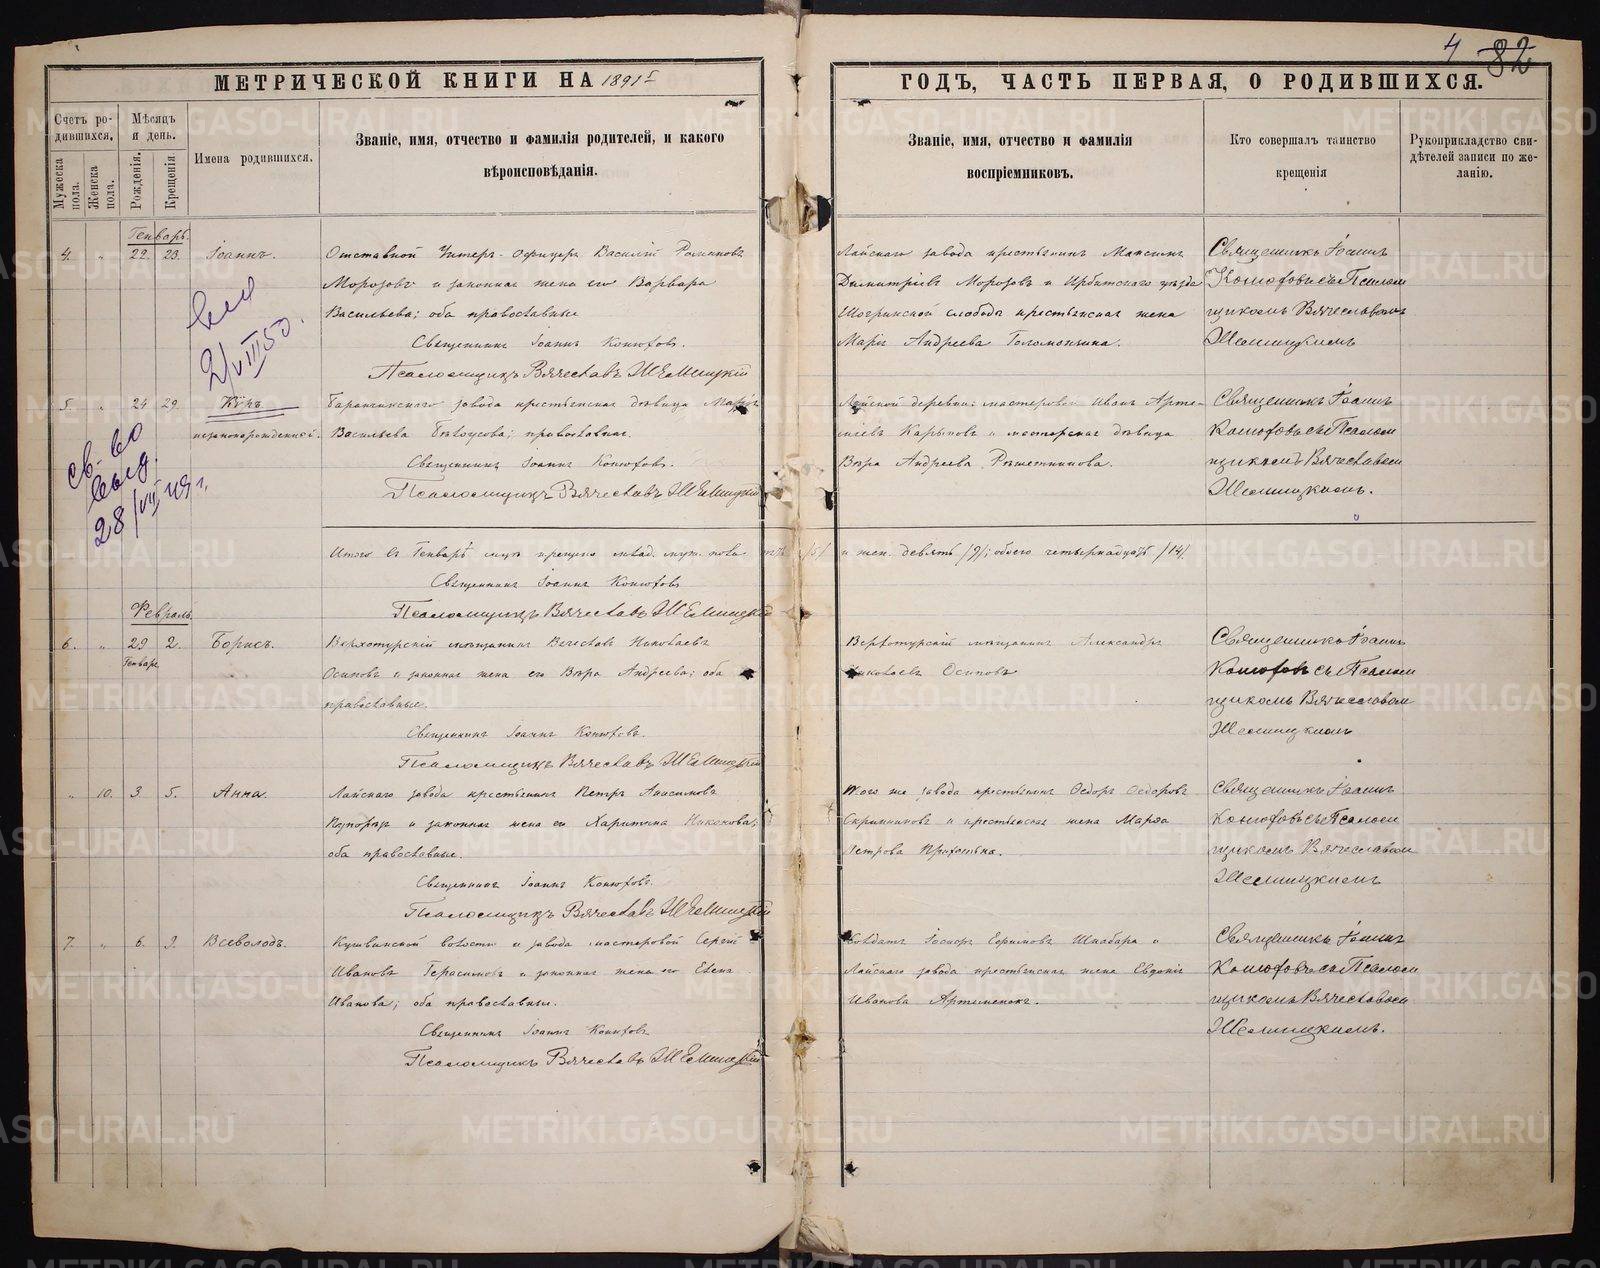 4 82
МЕТРИЧЕСКОЙ КНИГИ НА 1891й
ГОДЪ, ЧАСТЬ ПЕРВАЯ, О РОДИВШИХСЯ.
Счетъ ро-
дившихся.
Мужеска
пола.
Женска
пола.
Мѣсяцъ
и день.
Рожденія.
Крещенія
Имена родившихся.
Званіе, имя, отчество и фамилія родителей, и какого
вѣроисповѣданія.
Званіе, имя, отчество и фамилія
воспріемниковъ.
Кто совершалъ таинство
крещенія
Рукоприкладство сви-
дѣтелей записи по же-
ланію.
Генварь.
4. " 22. 23. Іоаннъ.
Отставной Унтеръ-офицеръ Василій Романовъ
Морозовъ и законная жена его Варвара
Васильева; оба православные
Священникъ Іоаннъ Конюховъ.
Псаломщикъ Вячеславъ Шемшецкій
Лайскаго завода крестьянинъ Максимъ
Димитріевъ Морозовъ и Ирбитскаго уѣзда
Шогринской слободы крестьянская жена
Марія Андреева
Священникъ Іоаннъ
Конюховъ съ Псалом
щикомъ Вячеславомъ
Шемшецкимъ
2/VIII 50.
5. " 24 29. Кѵръ
незаконнорожденный.
Баранчинскаго завода крестьянская дѣвица Марія
Васильева Бѣлоусова; православная.
Священникъ Іоаннъ Конюховъ.
Псаломщикъ Вячеславъ Шемшецкій
Лайской деревни: мастеровой Иванъ Арте-
міевъ Карповъ и мастерская дѣвица
Вѣра Андреева Рѣшетникова.
Священникъ Іоаннъ
Конюховъ съ Псалом
щикомъ Вячеславом
Шемшецкимъ.
св-во
выд.
28/VII 49 г.
Итого въ Генварѣ муж. пола /5/ и жен. девять /9/; обоего четырнадцать /14/.
Священникъ Іоаннъ Конюховъ
Псаломщикъ Вячеславъ Шемшецкій
Февраль.
6. " 29 2. Борисъ.
Генваря
Верхотурскій мѣщанинъ Вячеславъ Николаевъ
Осиповъ и законная жена его Вѣра Андреева; оба
православные.
Священникъ Іоаннъ Конюховъ.
Псаломщикъ Вячеславъ Шемшецкій
Верхотурскій мѣщанинъ Александръ
Николаевъ Осиповъ
Священникъ Іоаннъ
Конюховъ съ Псалом
щикомъ Вячеславом
Шемшецкимъ
" 10. 3. 5. Анна.
Лайскаго завода крестьянинъ Петръ Анисимовъ
и законная жена его Харитина Никонова;
оба православные.
Священникъ Іоаннъ Конюховъ.
Псаломщикъ Вячеславъ Шемшецкій
Того же завода крестьянинъ Ѳедоръ Ѳедоровъ
Скрипниковъ и крестьянская жена Марѳа
Петрова
Священникъ Іоаннъ
Конюховъ съ Псалом
щикомъ Вячеславом
Шемшецкимъ
7. " 6. 9. Всеволодъ.
Кушвинской волости и завода мастеровой Сергій
Ивановъ Герасимовъ и законная жена его Елена
Иванова; оба православные.
Священникъ Іоаннъ Конюховъ
Псаломщикъ Вячеславъ Шемшецкій
Солдатъ Ефимовъ и
Лайскаго завода крестьянская жена Евдокія
Иванова
Священникъ Іоаннъ
Конюховъ съ Псалом
щикомъ Вячеславом
Шемшецкимъ.
METRIKI.GASO-URAL.RU